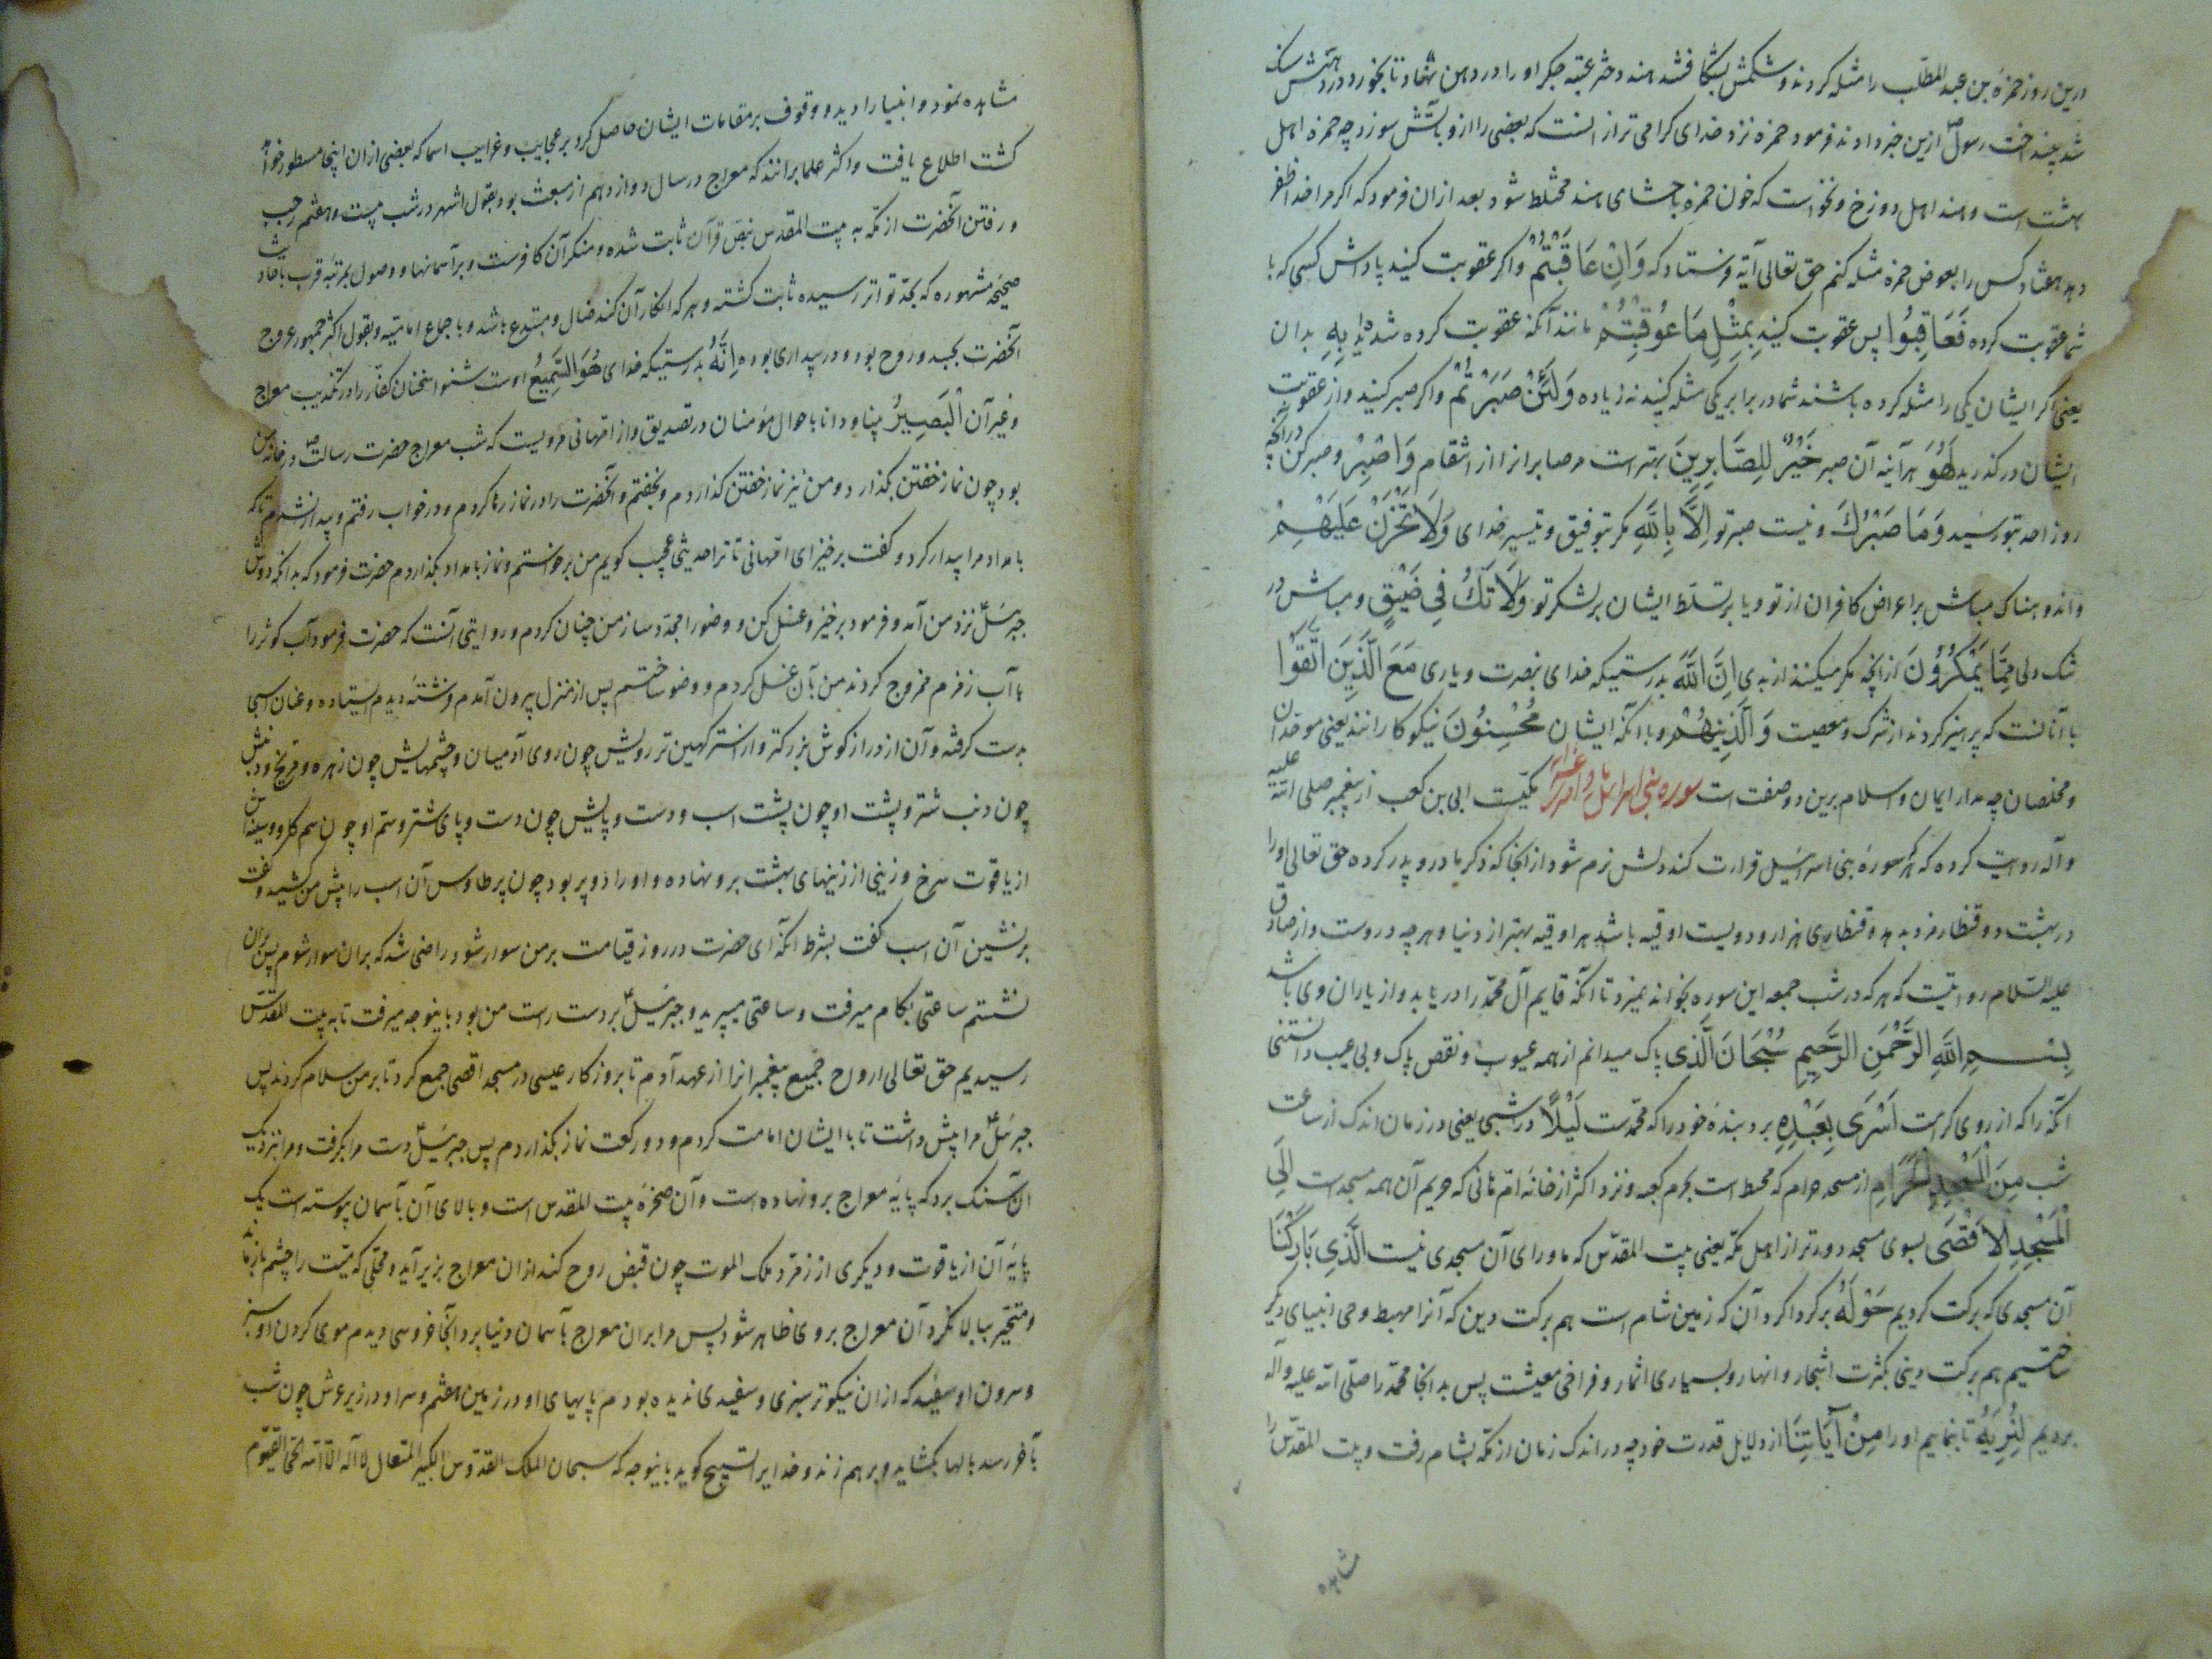 درین روز حمزهٔ بن عبد المطلب را مثله کردند و شکمش بشکافتند هند دختر عتبه جکر او را در دهن نهاد تا بخورد در دهنش سنک
شد بینداخت رسول ازین خبر دادند فرمود حمزه نزد خدای کرامی تر از انست که بعضی را ازو بآتش سوزد چه حمزه اهل
بهشت است و هند اهل دوزخ و نخواست که خون حمزه باحشای هند مختلط شود بعد ازان فرمود که اکر مرا خدا ظفر
دهد هفتاد کس را بعوض حمزه مثله کنم حق تعالی آیه فرستاد که وَاِنْ عَاقَبْتُمْ و اکر عقوبت کنید پاداش کسی که با
شما عقوبت کرده فَعَاقِبُوا پس عقوبت کنید بِمِثْلِ مَا عُوقِبْتُمْ مانند آنکه عقوبت کرده شده اید بِهِ بدان
یعنی اکر ایشان یکی را مثله کرده باشند شما در برابر یکی مثله کنید نه زیاده وَلَئِنْ صَبَرْتُمْ و اکر صبر کنید و از عقوبت
ایشان در کذرید لَهُوَ هر آینه آن صبر خَيْرٌ لِلصَّابِرِينَ بهتر است مر صابرانرا از انتقام وَاصْبِرْ و صبر کن در آنچه
روز احد بتو رسید وَمَا صَبْرُكَ و نیست صبر تو اِلَّا بِاللَّهِ مکر بتوفیق و تیسیر خدای وَلَا تَحْزَنْ عَلَيْهِمْ
و اندوهناک مباش بر اعراض کافران از تو و یا بر تسلط ایشان بر لشکر تو وَلَا تَكُ فِي ضَيْقٍ و مباش در
تنک دلی مِمَّا يَمْكُرُونَ از آنچه مکر میکنند از بدی اِنَّ اللَّهَ بدرستیکه خدای بنصرت و یاری مَعَ الَّذِينَ اتَّقَوْا
با آنانست که پرهیز کردند از شرک و معصیت وَ الَّذِينَ هُمْ و با آنکه ایشان مُحْسِنُونَ نیکوکارانند یعنی موحدان
و مخلصان چه مدار ایمان و اسلام برین دو صفت است سوره بنی اسرائیل مکیّت ابی بن کعب از پیغمبر صلی الله علیه
و آله روایت کرده که هر که سورهٔ بنی اسرائیل قرائت کند دلش نرم شود از آنجا که ذکر مادر و پدر کرده حق تعالی اورا
در بهشت دو قنطار مزد بدهد و قنطاری هزار و دویست اوقیه باشد هر اوقیه بهتر از دنیا و هر چه دروست و از صادق
علیه السلام روایتست که هر که در شب جمعه این سوره بخواند نمیرد تا آنکه قایم آل محمد را دریابد و از یاران وی باشد
بِسْمِ اللَّهِ الرَّحْمَنِ الرَّحِيمِ سُبْحَانَ الَّذِي پاک میدانم از همه عیوب و نقص پاک و بی عیب دانستنی
آنکه را که از روی کرامت اَسْرَى بِعَبْدِهِ برد بندهٔ خود را که محمدست لَيْلًا در شبی یعنی در زمان اندک از ساعت
شب مِنَ الْمَسْجِدِ الْحَرَامِ از مسجد حرام که محیط است بحرم کعبه و نزد اکثر از خانهٔ ام هانی که حریم آن همه مسجد است اِلَى
الْمَسْجِدِ الْاَقْصَى بسوی مسجد دورتر از اهل مکه یعنی بیت المقدس که ماورای آن مسجدی نیست الَّذِي بَارَكْنَا
آن مسجدی که برکت کردیم حَوْلَهُ بر کرداکرد آن که زمین شام است هم برکت دین که آنرا مهبط وحی انبیای دیکر
ساختیم هم برکت دینی بکثرت اشجار و انهار و بسیاری اثمار و فراخی معیشت پس بدانجا محمد را صلی الله علیه و آله
بردیم لِنُرِيَهُ تا بنماییم او را مِنْ آيَاتِنَا از دلایل قدرت خود چه در اندک زمان از مکه بشام رفت و بیت المقدس را
مشاهده
مشاهده نمود و انبیا را دید و وقوف بر مقامات ایشان حاصل کرد بر عجایب و غرایب اسما که بعضی از ان اینجا مسطور خواهد
کشت اطلاع یافت و اکثر علما برانند که معراج در سال دوازدهم از مبعث بود بقول اشهر در شب بیست و هفتم رجب
و رفتن آنحضرت از مکه به بیت المقدس بنص قرآن ثابت شده و منکر آن کافرست و بر آسمانها و وصول بمرتبهٔ قرب باحادیث
صحیحهٔ مشهوره که بحد تواتر رسیده ثابت کشته و هر که انکار آن کند ضال و مبتدع باشد و باجماع امامیه و بقول اکثر جمهور عروج
آنحضرت بجسد و روح بود و در بیداری بوده اِنَّهُ بدرستیکه خدای هُوَ السَّمِيعُ اوست شنوا سخنان کفار را در تکذیب معراج
و غیر آن الْبَصِيرُ بینا و دانا باحوال مؤمنان در تصدیق و از ام هانی مرویست که شب معراج حضرت رسالت در خانهٔ من
بود چون نماز خفتن بکذارد و من نیز نماز خفتن کذاردم و بخفتم و آنحضرت را در نماز رها کردم و در خواب رفتم و بیدار نشدم تا که
بامداد مرا بیدار کرد و کفت برخیز ای ام هانی تا ترا حدیثی عجیب کویم من برخواستم و نماز بامداد بکذاردم حضرت فرمود که بدانکه دوش
جبرئیل نزد من آمد و فرمود برخیز و غسل کن و وضو را مجدد ساز من چنان کردم و روایتی آنست که حضرت فرمود آب کوثر را
با آب زمزم ممزوج کردند من بآن غسل کردم و وضو ساختم پس از منزل بیرون آمدم فرشتهٔ دیدم ایستاده و عنان اسبی
بدست کرفته و آن از دراز کوش بزرکتر و از استر کهین تر رویش چون روی آدمیان و چشمهایش چون زهره و مریخ و دنبش
چون دنب شتر و پشت او چون پشت اسب و دست و پایش چون دست و پای شتر و سم او چون سم کاو و سینه اش
از یاقوت سرخ و زینی از زینهای بهشت برو نهاده و او را دو پر بود چون پر طاوس آن اسب را پیش من کشید و کفت
برنشین آن اسب کفت بشرط آنکه ای حضرت در روز قیامت بر من سوار شود راضی شد که بران سوار شوم پس بران
نشستم ساعتی بکام میرفت و ساعتی میپرید و جبرئیل بر دست راست من بود باینوجه میرفت تا به بیت المقدس
رسیدیم حق تعالی ارواح جمیع پیغمبرانرا از عهد آدم تا بروزکار عیسی در مسجد اقصی جمع کرد تا بر من سلام کردند پس
جبرئیل مرا پیش داشت تا با ایشان امامت کردم و دو رکعت نماز بکذاردم پس جبرئیل دست مرا بکرفت و مرا نزدیک
آن سنک برد که پایهٔ معراج برو نهاده است و آن صخرهٔ بیت المقدس است و بالای آن بآسمان پیوسته است یک
پایهٔ آن از یاقوت و دیکری از زمرد ملک الموت چون قبض روح کند ازان معراج بزیر آید و محلی که میّت را چشم باز ماند
و متحیر ببالا نکرد آن معراج بروی ظاهر شود پس مرا بران معراج بآسمان دنیا برد آنجا خروسی دیدم موی کردن او سبز
و سرون او سفید که ازان نیکوتر سبزی و سفیدی ندیده بودم پایهای او در زمین هفتم و سر او در زیر عرش چون شب
بآخر رسد بالها بکشاید و بر هم زند و خدایرا تسبیح کوید باینوجه که سبحان الملک القدوس الکبیر المتعال لا اله الا الله الحی القیوم